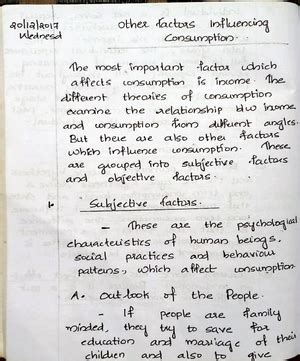 20/12/2017 Other Factors Influencing
Wednesd Consumption.
The most important factor which
affects consumption is income. The
different theories of consumption
examine the relationship b/w income
and consumption from different angles.
But there are also other factors
which influence consumption. These
are grouped into subjective factors
and objective factors.
1. Subjective factors.
- These are the psychological
characteristics of human beings,
social practices and behaviour
patterns, which affect consumption
A. Outlook of the People.
- If people are family
minded, they try to save for
education and marriage of their
children and also to give